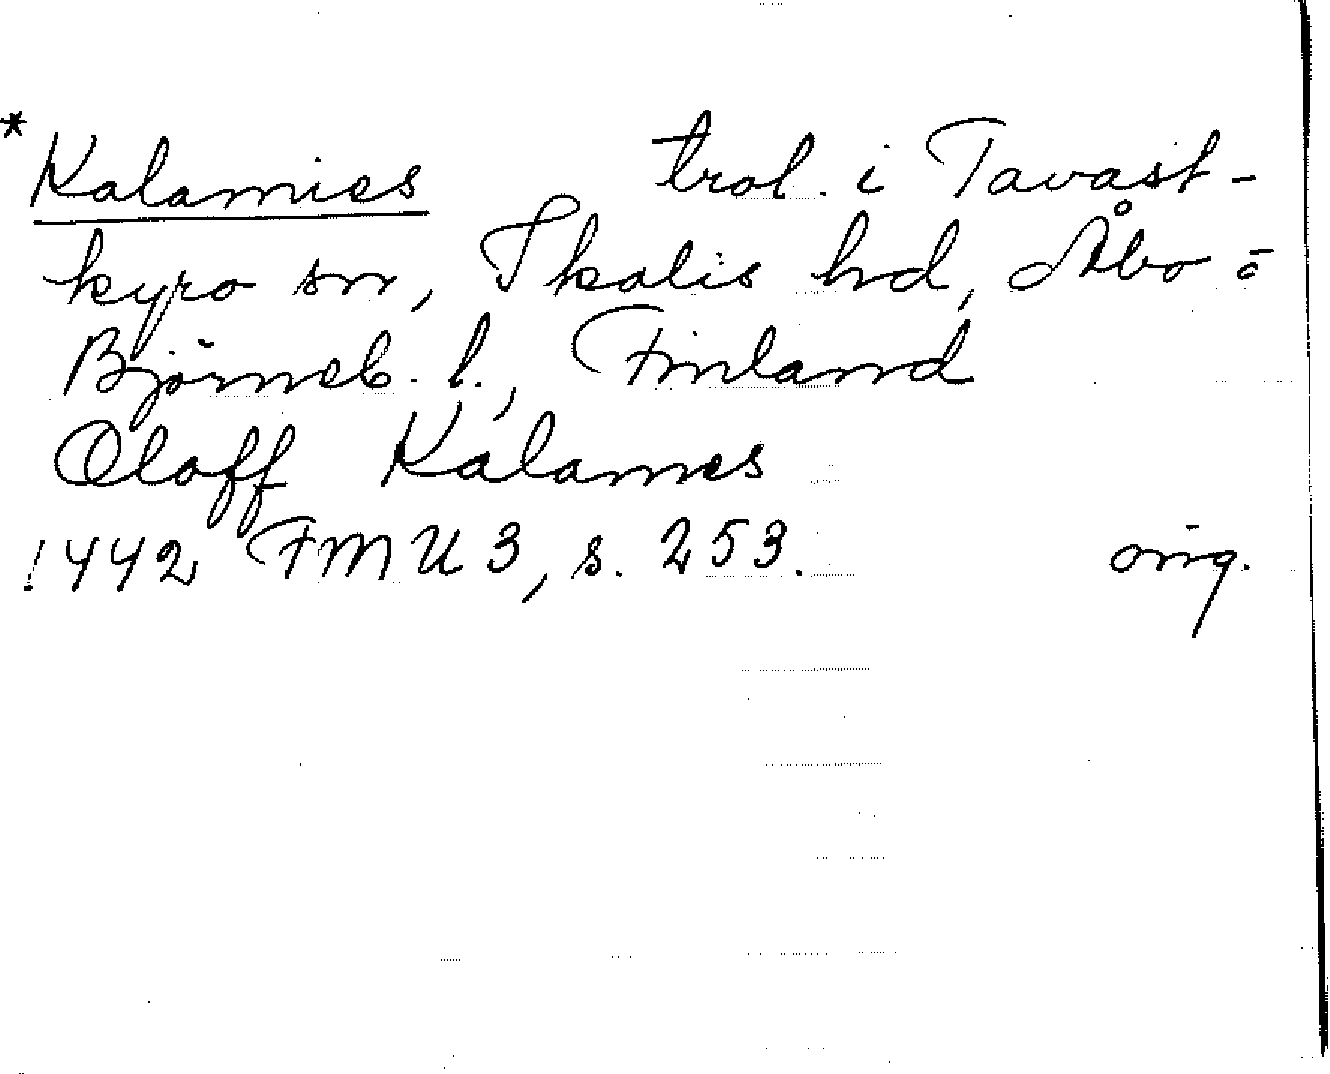 *Kalamies trol. i Tavast-
kyro sn, Ikalis hd, Åbo o
Björneb. l., Finland
Oloff Kalames
1442 FMU 3, s. 253. orig.